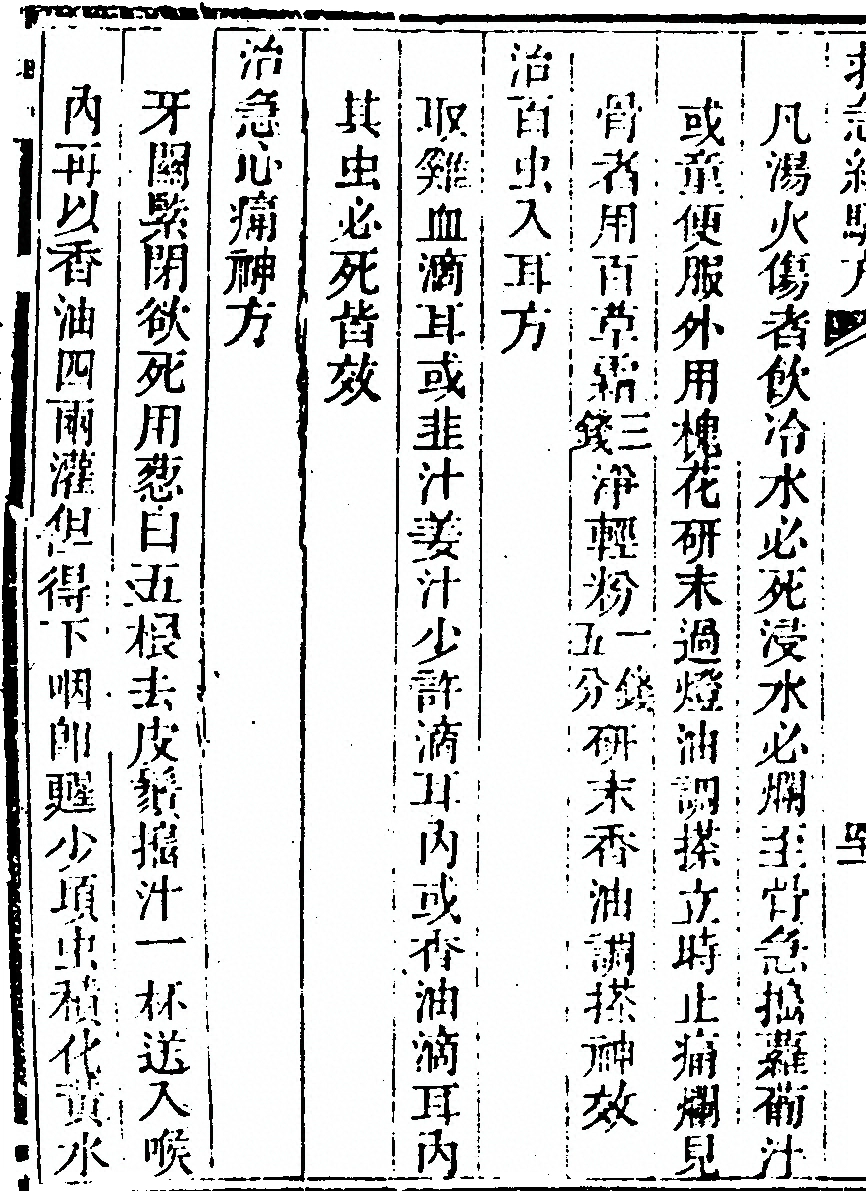 救急經驗方
凡湯火傷者飲冷水必死浸水必爛至骨急搗蘿蔔汁
或童便服外用槐花研末過燈油調搽立時止痛爛見
骨者用百草霜三錢淨輕粉一錢五分研末香油調搽神效
治百虫入耳方
取雞血滴耳或韭汁姜汁少許滴耳內或香油滴耳內
其虫必死皆效
治急心痛神方
牙關緊閉欲死用葱白五根去皮鬚搗汁一杯送入喉
內再以香油四兩灌但得下咽即醒少項虫積化黃水